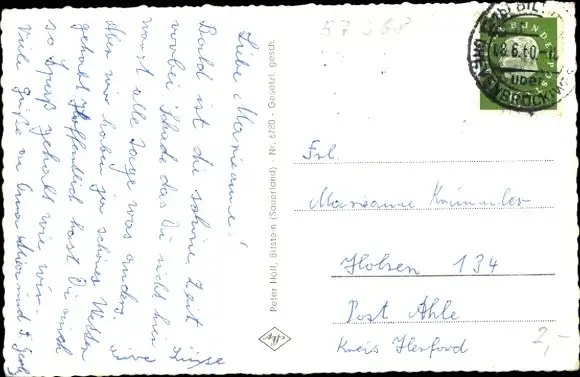 Liebe Marieanne!
Bald ist die schöne Zeit
vorbei. Schade das Du nicht hier
warst alle Tage was anders.
Aber wir haben gar schönes Wetter
gehabt. Hoffentlich hast Du auch
so Spaß gehabt wie wir.
Viele Grüße an Oma
Grüße
Peter Holl, Bilstein (Sauerland) - Nr. 6780 - Gesetzl. gesch.
Frl.
Marianne Krümmler
Holsen 134
Post Ahle
Kreis Herford
2,-
8.6.60
über